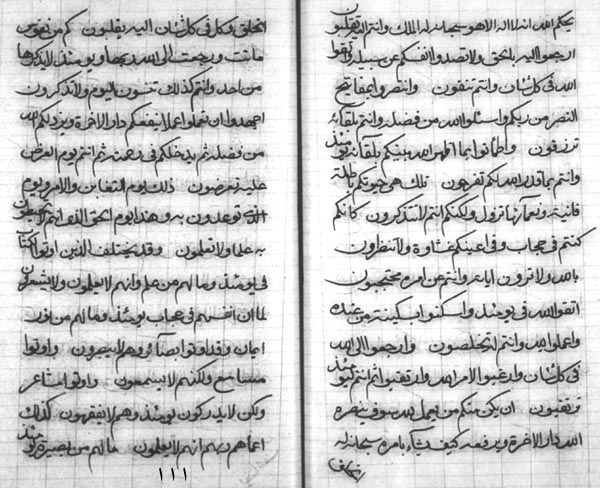 بحكم الله انه لا اله الا هو سبحانه له الملك وانتم اليه تقلبون
ارجعوا اليه بالحق ولا تصدوا انفسكم عن سبيله واتقوا
الله فى كل شان وانتم تتقون وانتصروا بمفاتيح
النصر من ربكم واسئلوا الله من فضله وانتم بلقائه
ترزقون واطمأنوا بما اظهر الله بينكم بلقائه يومئذ
وانتم بما قدر الله لكم تفرحون تلك هى حيوتكم باطلة
فانية ونعمآئها تزول ولكنكم انتم لا تتذكرون كانكم
كنتم فى حجاب وفى اعينكم غشاوة ولا تنظرون
بالله ولا ترون اياته وانتم عن امره محتجبون
اتقوا الله فى يومئذ واسكنوا بسكينة من عنده
واعملوا لله وانتم لتخلصون وارجعوا الى الله
فى كل شان وارغبوا الامر الله وارتقبوا انتم يومئذ
ترتقبون ان يكن منكم من يعمل لله سوف ينصره
الله دار الاخرة ويرفعه كيف يشآء بامره سبحانه له
الخلق وكل فى كل شان اليه يقلبون كم من نفوس
ماتت ورجعت الى الله ربها ويومئذ لا يذكرها
من احد وانتم كذلك تنسون اليوم ولا تذكرون
اجهدوا ان تعملوا عملا ينفعكم دار الاخرة ويزيدكم الله
من فضله ثم يدخلكم فى رحمته ثم انتم يوم العرض
عليه تعرضون ذلك يوم التغابن والامر ويوم
الذى توعدون به وهذا يوم الحق الذى انتم لا تحيطون
به علما ولا تعلمون وقد يختلف الذين اوتوا الكتاب
فى يومئذ وما لهم من علم وانهم لا يعلمون ولا يشعرون
لما ان انفسهم فى حجاب يومئذ وما لهم من نور
ايمان وقد اوتوا بصآئر وهم لا يبصرون واوتوا
مسامع ولكنهم لا يسمعون واوتوا المشاعر
ولكن لا يدركون يومئذ وهم لا يفقهون كذلك
اعماهم ربهم انهم لا يعلمون ما لهم من بصيرة يومئذ
١١١